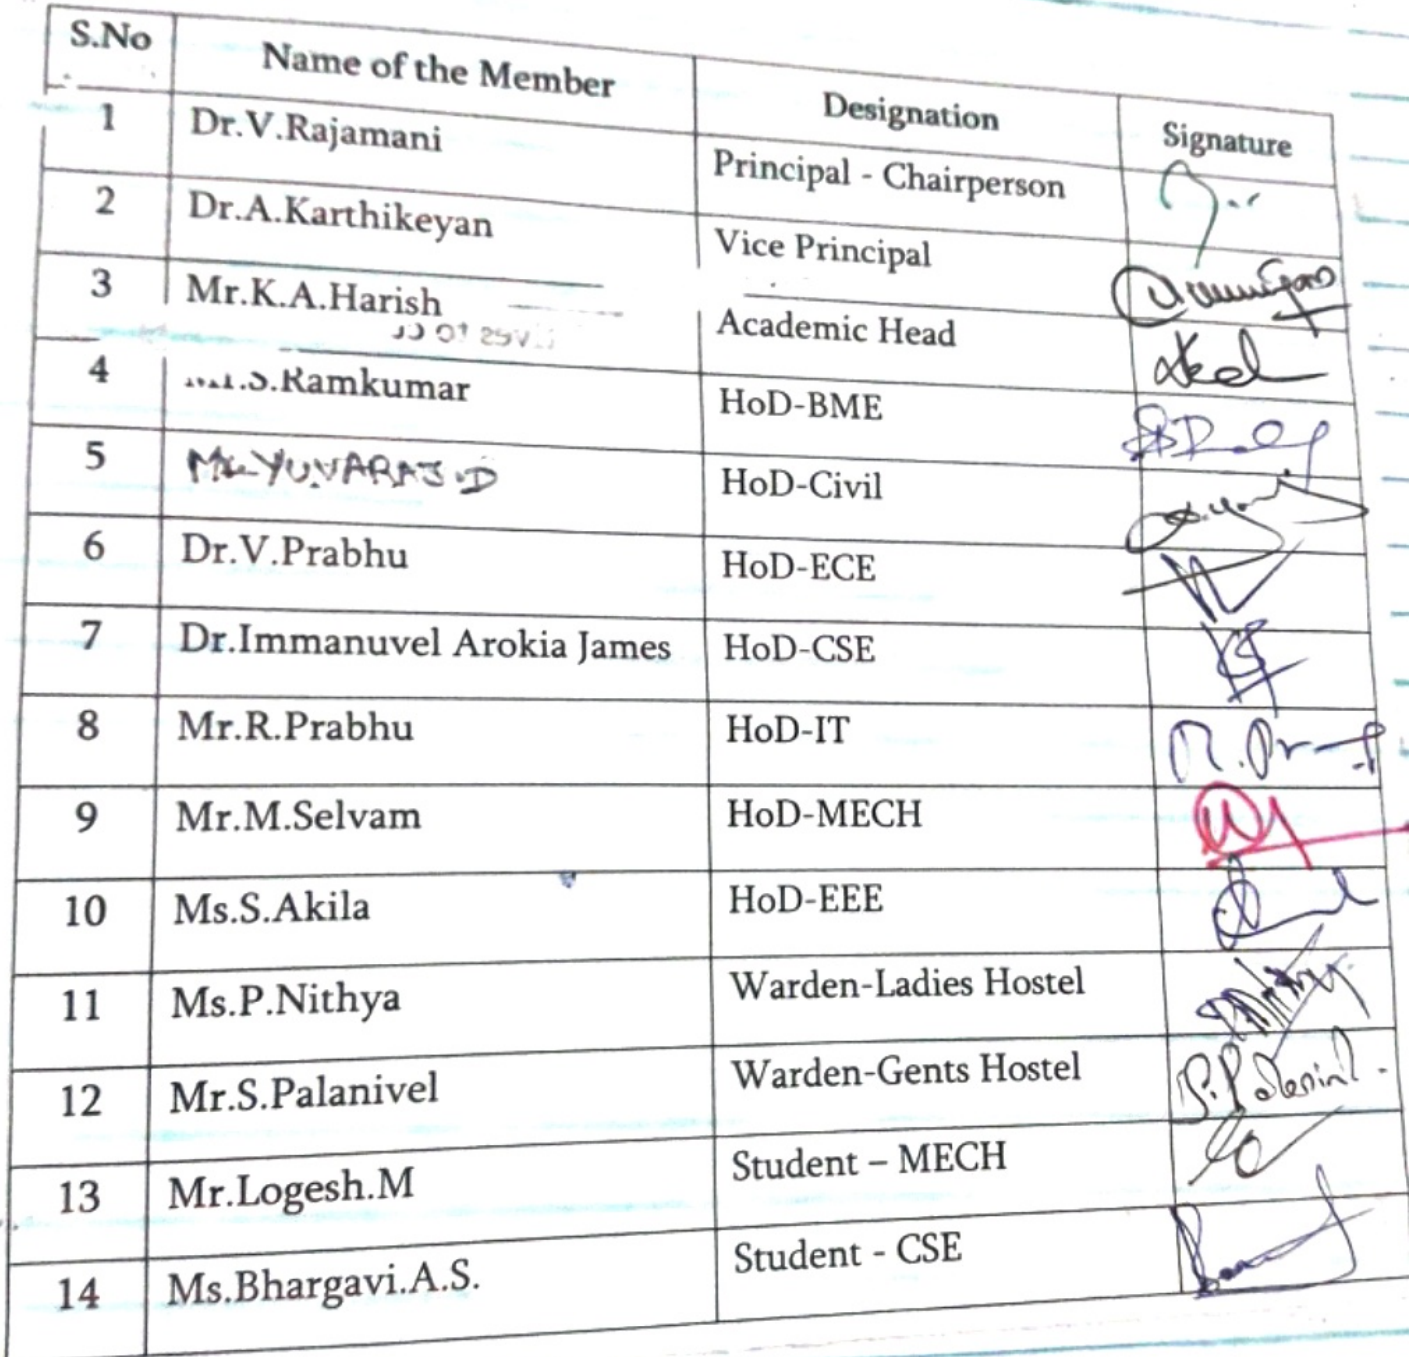 S.No Name of the Member Designation Signature
1 Dr.V.Rajamani Principal - Chairperson
2 Dr.A.Karthikeyan Vice Principal
3 Mr.K.A.Harish Academic Head
4 S.Ramkumar HoD-BME
5 Mr.YUVARAJ.D HoD-Civil
6 Dr.V.Prabhu HoD-ECE
7 Dr.Immanuvel Arokia James HoD-CSE
8 Mr.R.Prabhu HoD-IT
9 Mr.M.Selvam HoD-MECH
10 Ms.S.Akila HoD-EEE
11 Ms.P.Nithya Warden-Ladies Hostel
12 Mr.S.Palanivel Warden-Gents Hostel
13 Mr.Logesh.M Student – MECH
14 Ms.Bhargavi.A.S. Student - CSE